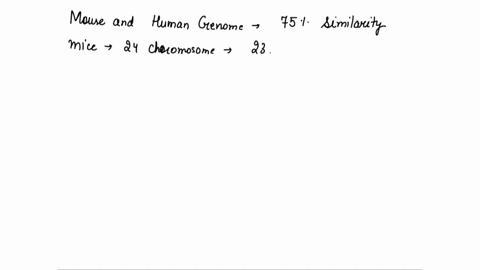 Mouse and Human Genome → 75% Similarity
mice → 24 chromosome → 23.